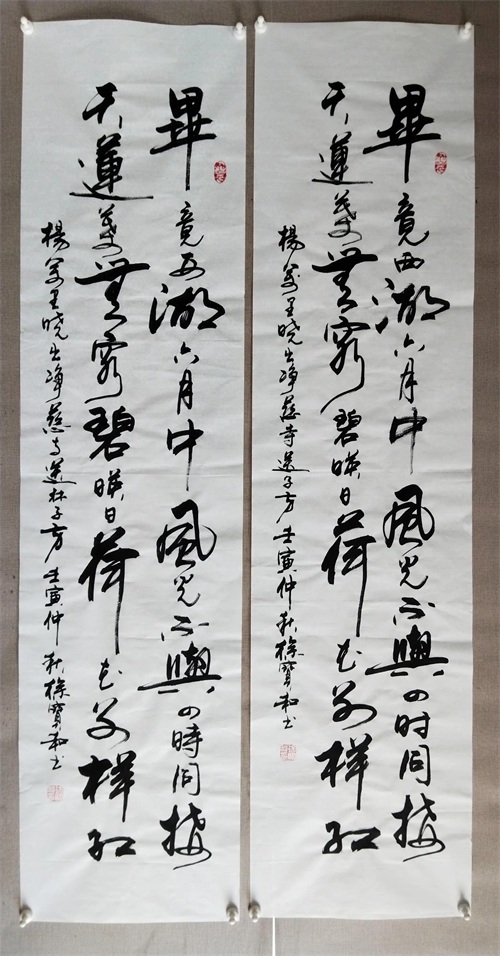 畢竟西湖六月中風光不與四时同接
天蓮葉無窮碧映日荷花別樣紅
楊萬里晓出净慈寺送子方 壬寅仲秋徐寶和书
畢竟西湖六月中風光不與四時同接
天蓮葉無窮碧映日荷花別樣紅
楊萬里晓出净慈寺送林子方 壬寅仲秋徐寶和书